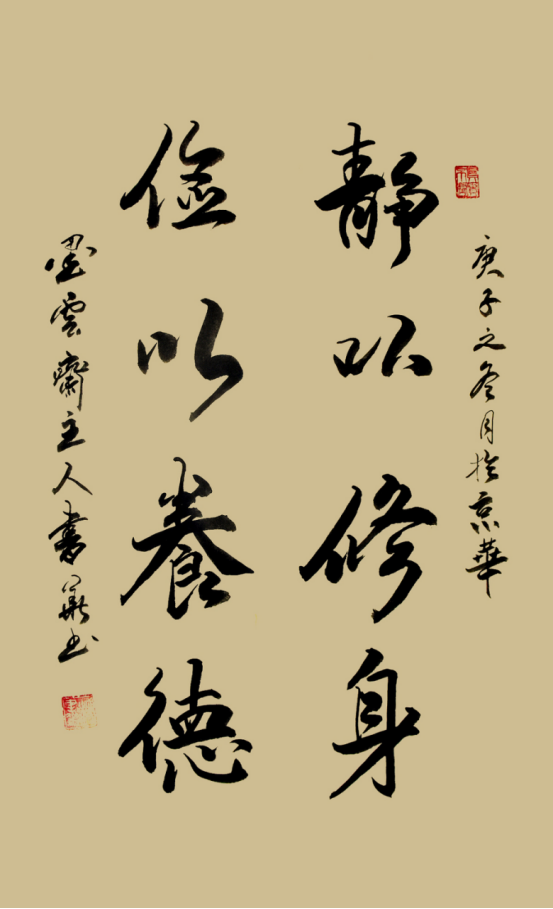 庚子之冬月於京華
靜以修身
儉以養德
墨雲齋主人書